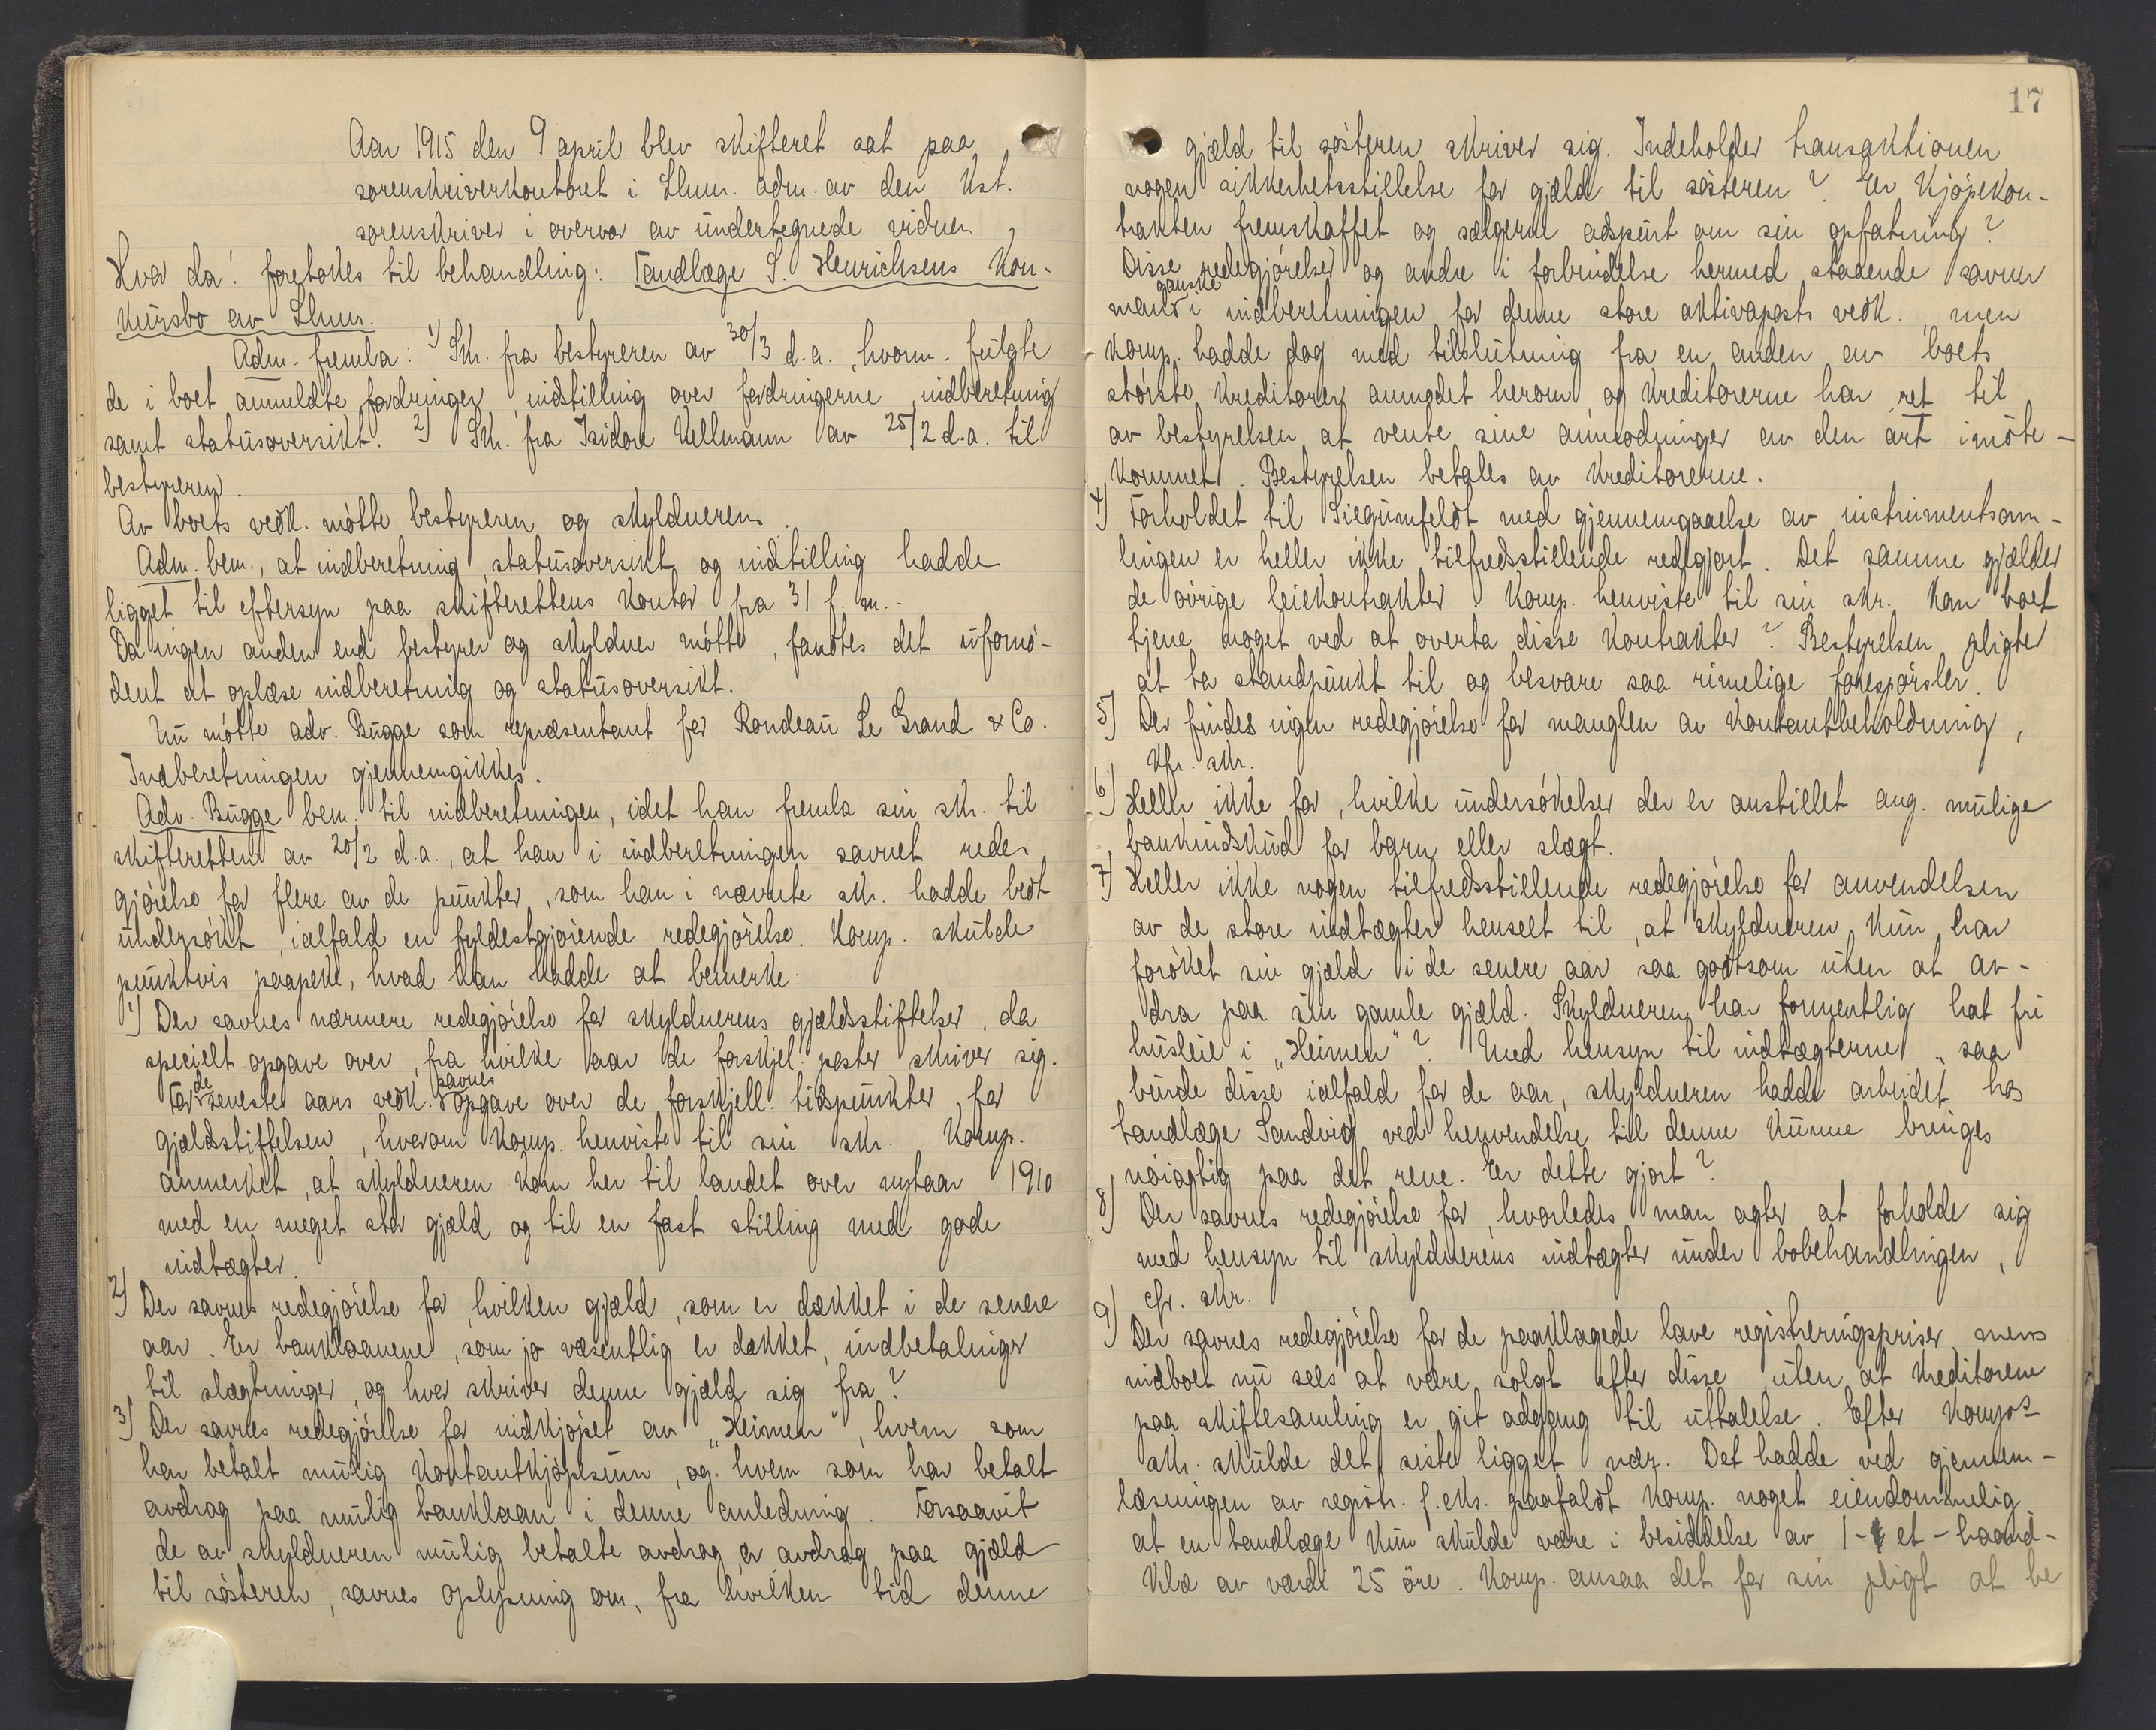 Aar 1915 den 9 april blev skifteret sat paa
sorenskriverkontoret i Lhmr. adm. av den kst.
sorenskriver i overvær av undertegnede vidner
Hvor da: foretokes til behandling: Tandlæge S. Henrichsens kon-
kursbo av Lhmr.
Adm. fremla: 1) Skr. fra bestyreren av 30/3 d.a., hvorm. fulgte
de i boet anmeldte fordringer, indstilling over fordringerne, indberetning
samt statusoversikt. 2) Skr. fra Isidor Kellmann av 25/2 d.a. til
bestyreren.
Av boets vedk. møtte bestyreren og skyldneren.
Adm. bem., at indberetning, statusoversikt og indstilling hadde
ligget til eftersyn paa skifterettens kontor fra 31 f. m..
Da ingen anden end bestyrer og skyldner møtte, fandtes det ufornø-
dent at oplæse indberetning og statusoversikt.
Nu møtte adv. Bugge som repræsentant for Rondeau Le Grand & Co.
Indberetningen gjennemgikkes.
Adv. Bugge bem. til indberetningen, idet han fremla sin skr. til
skifteretten av 20/2 d.a., at han i indberetningen savnet rede-
gjørelse for flere av de punkter, som han i nævnte skr. hadde bedt
undersøkt, ialfald en fyldestgjørende redegjørelse. Komp. skulde
punktvis paapeke, hvad han hadde at bemerke:
1) Der savnes nærmere redegjørelse for skyldnerens gjældsstiftelser, da
specielt opgave over, fra hvilke aar de forskjel. poster skriver sig.
For de seneste aars vedk. savnes opgave over de forskjell. tidspunkter for
gjældstiftelsen, hvorom komp. henviste til sin skr. Komp.
anmerket, at skyldneren kom her til landet over nytaar 1910
med en meget stor gjæld og til en fast stilling med gode
indtægter.
2) Der savnes redegjørelse for, hvilken gjæld, som er dækket i de senere
aar. Er banklaanene, som jo væsentlig er dækket, indbetalinger
til slægtninger, og hvor skriver denne gjæld sig fra?
3) Der savnes redegjørelse for indkjøpet av "Heimen", hvem som
har betalt mulig kontantkjøpesum, og hvem som har betalt
avdrag paa mulig banklaan i denne anledning. Forsaavit
de av skyldneren mulig betalte avdrag er avdrag paa gjæld
til søsteren, savnes oplysning om, fra hvilken tid denne
17
gjæld til søsteren skriver sig. Indeholder transaktionen
nogen sikkerhetsstillelse for gjæld til søsteren? Er kjøpekon-
trakten fremskaffet og sælgerne adspurt om sin opfatning?
Disse redegjørelser og andre i forbindelse hermed staaende savner
man ganske i indberetningen for denne store aktivaposts vedk., men
komp. hadde dog med tilslutning fra en anden av boets
største kreditorer anmodet herom, og kreditorerne har ret til
av bestyrelsen at vente sine anmodninger av den art imøte-
kommet. Bestyrelsen betales av kreditorerne.
4) Forholdet til Siegumfeldt med gjennemgaaelse av instrumentsam-
lingen er heller ikke tilfredsstillende redegjort. Det samme gjælder
de øvrige leiekontrakter. Komp. henviste til sin skr. Kan boet
tjene noget ved at overta disse kontrakter? Bestyrelsen pligter
at ta standpunkt til og besvare saa rimelige forespørsler.
5) Der findes ingen redegjørelse for manglen av kontantbeholdning,
kfr. skr.
6) Heller ikke for, hvilke undersøkelser der er anstillet ang. mulige
bankindskud for barn eller slægt.
7) Heller ikke nogen tilfredsstillende redegjørelse for anvendelsen
av de store indtægter henseet til, at skyldneren kun har
forøket sin gjæld i de senere aar saa godtsom uten at av-
dra paa sin gamle gjæld. Skyldneren har formentlig hat fri
husleie i "Heimen"? Med hensyn til indtægterne, saa
burde disse ialfald for de aar, skyldneren hadde arbeidet hos
tandlæge Sandvig ved henvendelse til denne kunne bringes
nøiagtig paa det rene. Er dette gjort?
8) Der savnes redegjørelse for, hvorledes man agter at forholde sig
med hensyn til skyldnerens indtægter under bobehandlingen,
cfr. skr.
9) Der savnes redegjørelse for de paaklagede lave registreringspriser, mens
indboet nu sees at være solgt efter disse, uten at kreditorene
paa skiftesamling er git adgang til uttalelse. Efter komps
skr. skulde det siste ligget nær. Det hadde ved gjennem-
læsningen av registr. f.eks. paafaldt komp. noget eiendommelig
at en tandlæge kun skulde være i besiddelse av 1- et - haand-
klæ av værdi 25 øre. Komp. ansaa det for sin pligt at be